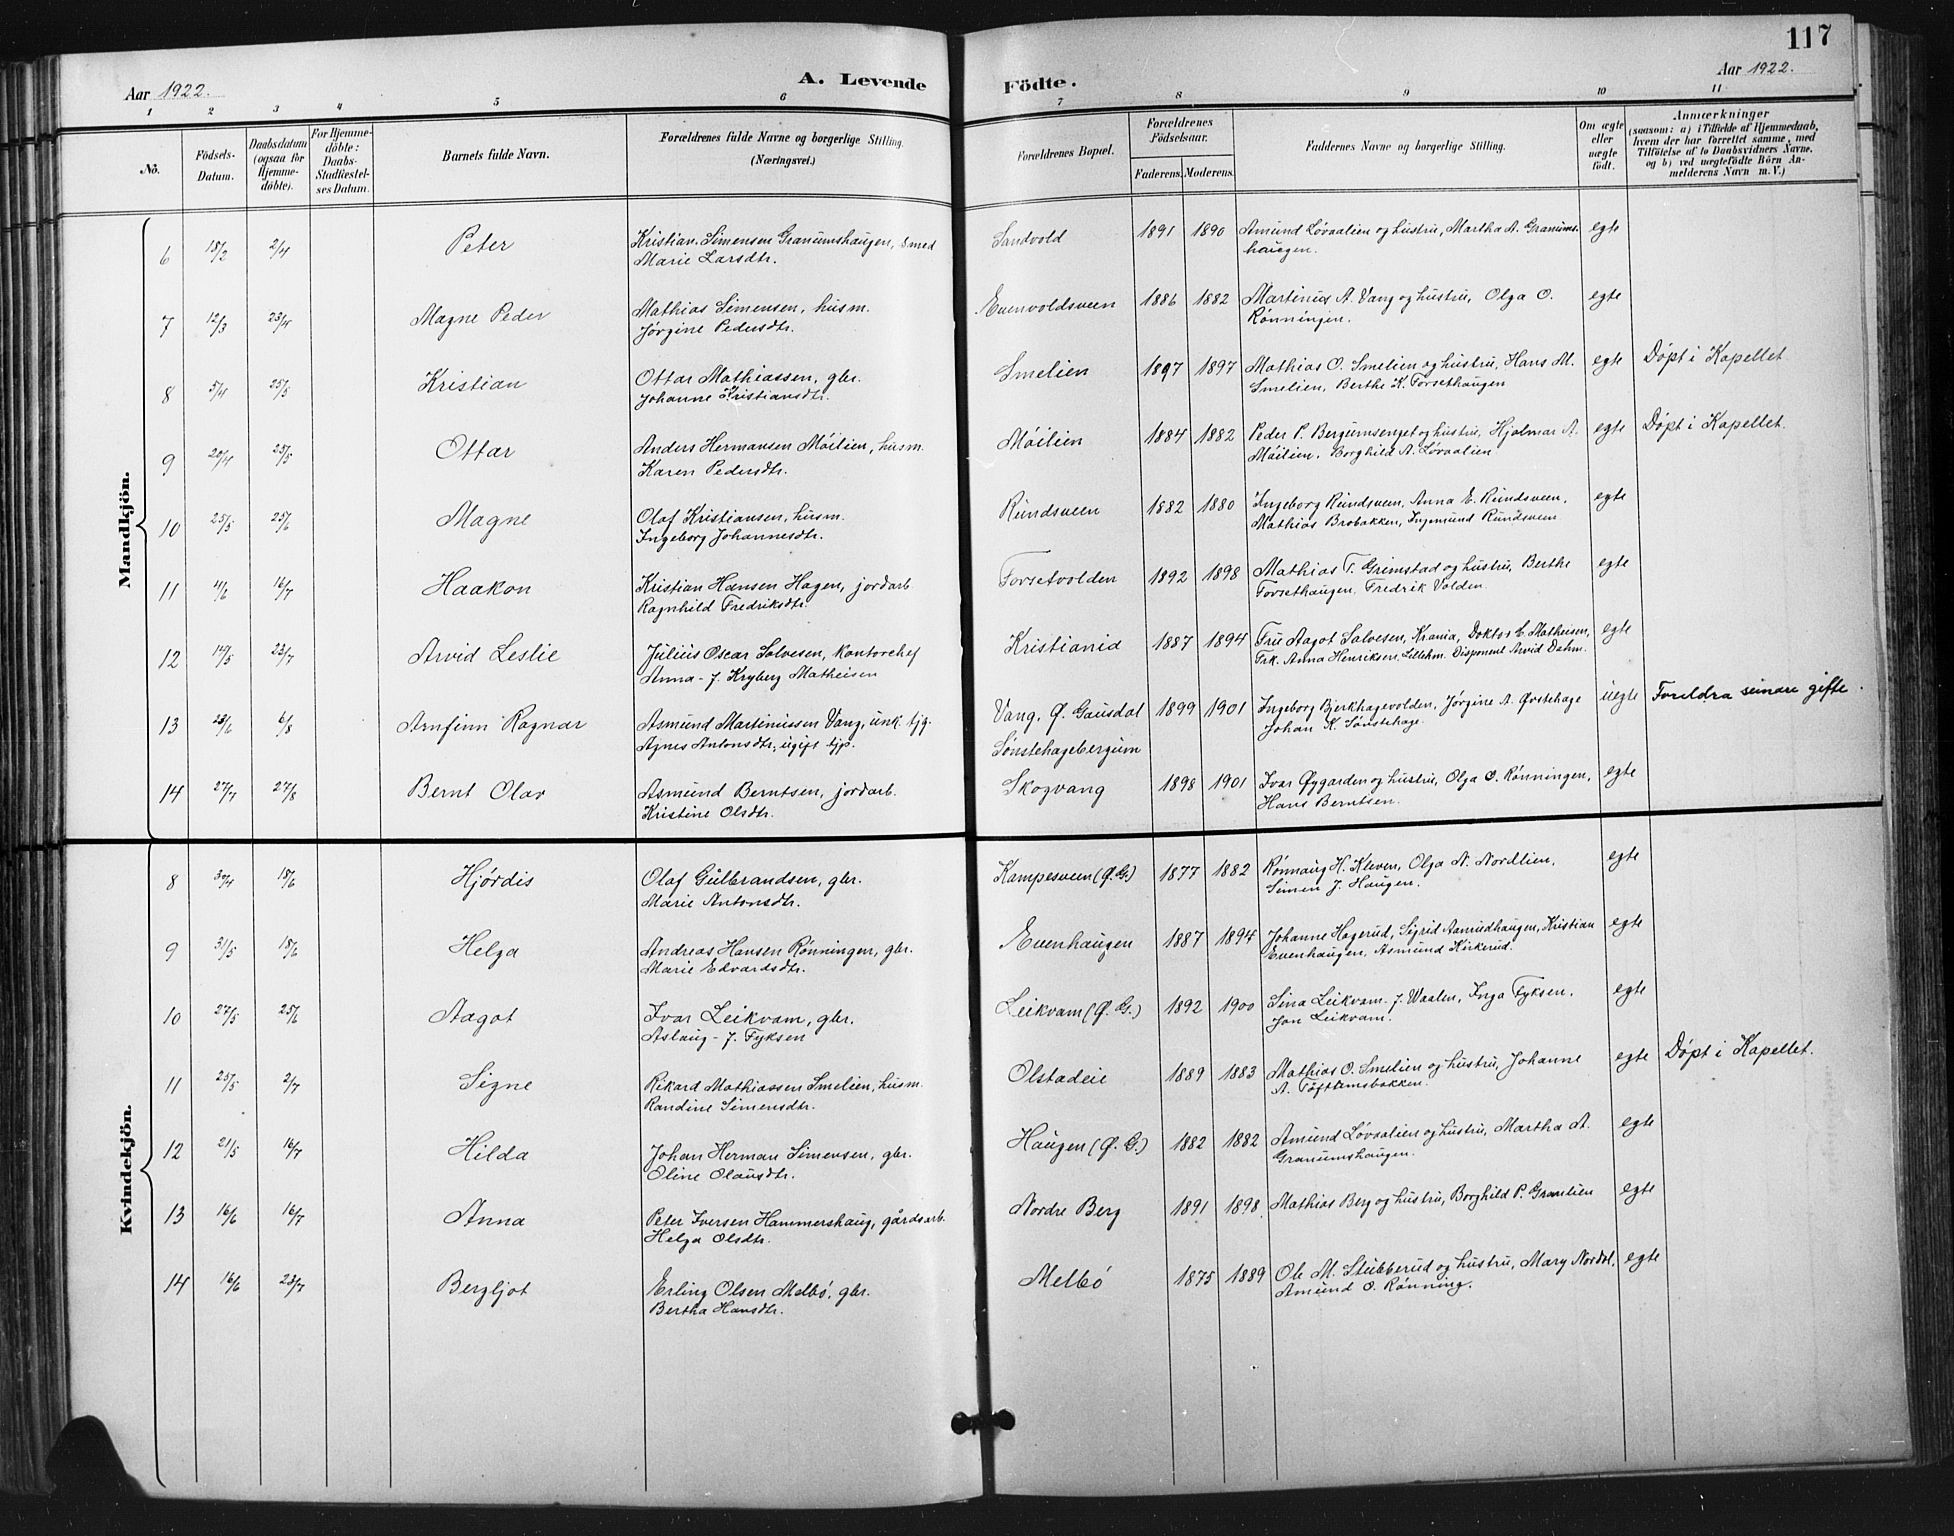 117
Aar 1922.
A. Levende Födte.
Aar 1922.
1 2 3 4 5 6 7 8 9 10 11
No.
Födsels-
Datum.
Daabsdatum
(ogsaa for
Hjemme-
döbte).
For Hjemme-
döbte:
Daabs-
Stadfæstel-
ses Datum.
Barnets fulde Navn.
Forældrenes fulde Navne og borgerlige Stilling.
(Næringsvei.)
Forældrenes Bopæl.
Forældrenes
Födselsaar.
Faderens. Moderens.
Faddernes Navne og borgerlige Stilling.
Om ægte
eller
uægte
födt.
Anmærkninger
(saasom: a) i Tilfælde af Hjemmedaab,
hvem der har forrettet samme, med
Tilföielse af to Daabsvidners Navne,
og b) ved uægtefödte Börn An-
melderens Navn m. V.)
Mandkjön.
6 15/2 2/4 Peter Kristian Simensen Granumshaugen, smed Sandvold 1891 1890 Amund Løvaalien og hustru, Martha A. Granums- egte
Marie Larsdtr. haugen.
7 12/3 23/4 Magne Peder Mathias Simensen, husm. Evenvoldsveen 1886 1882 Martinius A. Vang og hustru, Olga O. egte
Jørgine Pedersdtr. Rønningen.
8 5/4 25/5 Kristian Ottar Mathiassen, gbr. Smelien 1897 1897 Mathias O. Smelien og hustru, Hans M. egte Døpt i Kapellet
Johanne Kristiansdtr. Smelien, Berthe K. Forsethaugen
9 20/4 25/5 Ottar Anders Hermansen Møilien, husm. Møilien 1884 1882 Peder P. Bergumsenget og hustru, Hjalmar A. egte Døpt i Kapellet.
Karen Pedersdtr. Møilien, Borghild A. Løvaalien
10 25/5 25/6 Magne Olaf Kristiansen, husm. Rundsveen 1882 1880 Ingeborg Rundsveen, Anna E. Rundsveen, egte
Ingeborg Johannesdtr. Mathias Brobakken, Ingemund Rundsveen
11 4/6 16/7 Haakon Kristian Hansen Hagen, jordarb. Forsetvolden 1892 1898 Mathias T. Grimstad og hustru, Berthe egte
Ragnhild Fredriksdtr. Forsethaugen, Fredrik Volden.
12 14/5 23/7 Arvid Leslie Julius Oscar Salvesen, kontorchef Kristiania 1887 1894 Fru Aagot Salvesen, Krania, Doktor C. Matheisen, egte
Anna - J. Kryberg Matheisen Frk. Anna Henriksen, Lillehm. Disponent Arvid Dahm.
13 23/6 6/8 Arnfinn Ragnar Asmund Martiniussen Vang, unk. tjg. Vang, Ø. Gausdal 1899 1901 Ingeborg Bjerkhagevolden, Jørgine A. Øvstehage uegte Foreldra seinare gifte.
Agnes Antonsdtr., ugift tjp. Sønstehagebergum Johan K. Sønstehage.
14 27/7 27/8 Bernt Olav Asmund Berntsen, jordarb. Skogvang 1898 1901 Ivar Øygarden og hustru, Olga O. Rønningen, egte
Kristine Olsdtr. Hans Berntsen.
Kvindekjön.
8 30/4 18/6 Hjørdis Olaf Gulbrandsen, gbr. Kampesveen (Ø.G.) 1877 1882 Rønnaug H. Kleven, Olga N. Nordlien, egte
Marie Antonsdtr. Simen J. Haugen.
9 31/5 18/6 Helga Andreas Hansen Rønningen, gbr. Evenhaugen 1887 1894 Johanne Hagerud, Sigrid Aamrudhaugen, Kristian egte
Marie Edvardsdtr. Evenhaugen, Asmund Kirkerud.
10 27/5 25/6 Aagot Ivar Leikvam, gbr. Leikvam (Ø.G.) 1892 1900 Sina Leikvam - J. Waalen, Inga Fyksen, egte
Aslaug - J. Fyksen Jon Leikvam.
11 25/5 2/7 Signe Rikard Mathiassen Smelien, husm. Olstadeie 1889 1883 Mathias O. Smelien og hustru, Johanne egte Døpt i Kapellet.
Randine Simensdtr. A. Toftumsbakken.
12 21/5 16/7 Hilda Johan Herman Simensen, gbr. Haugen (Ø.G.) 1882 1882 Amund Løvaalien og hustru, Martha A. egte
Oline Olausdtr. Granumshaugen.
13 16/6 16/7 Anna Peter Iversen Hammershaug, gårdsarb. Nordre Berg 1891 1898 Mathias Berg og hustru, Borghild P. Granlien egte
Helga Olsdtr.
14 16/6 23/7 Bergljot Erling Olsen Melbø, gbr. Melbö 1875 1889 Ole M. Stubberud og hustru, Mary Nordal, egte
Bertha Hansdtr. Amund O. Rønning.